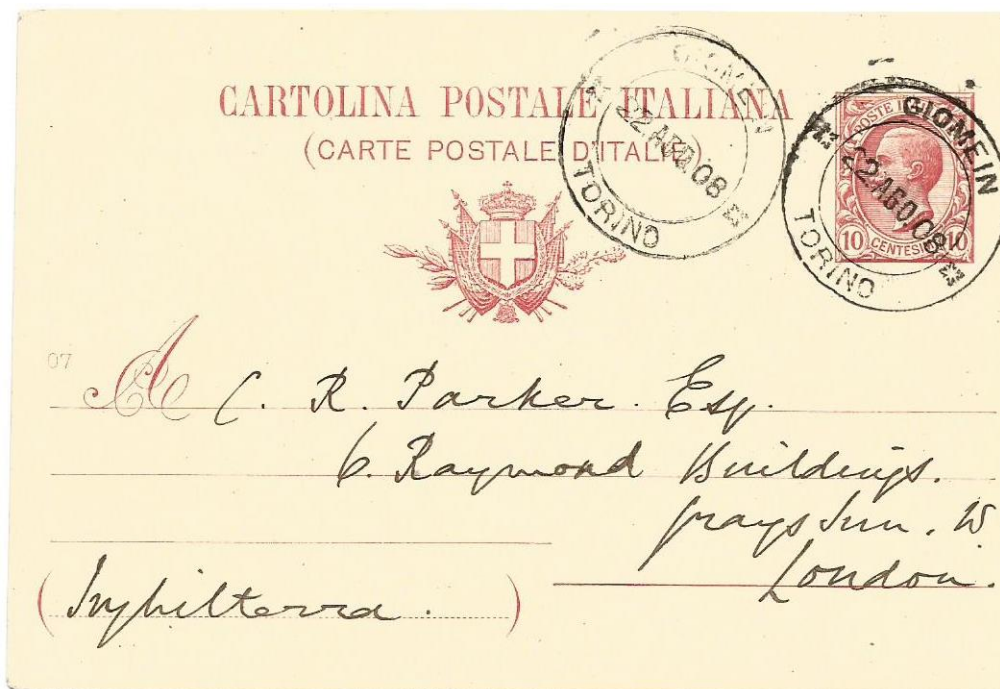 CARTOLINA POSTALE ITALIANA
(CARTE POSTALE D'ITALIE)
GIOMEIN
22 AGO 08
TORINO
POSTE
GIOMEIN
22 AGO 08
TORINO
10 CENTESIMI 10
07
A C. R. Parker. Esq.
6. Raymond Buildings.
Grays Inn. W
London.
(Inghilterra.)